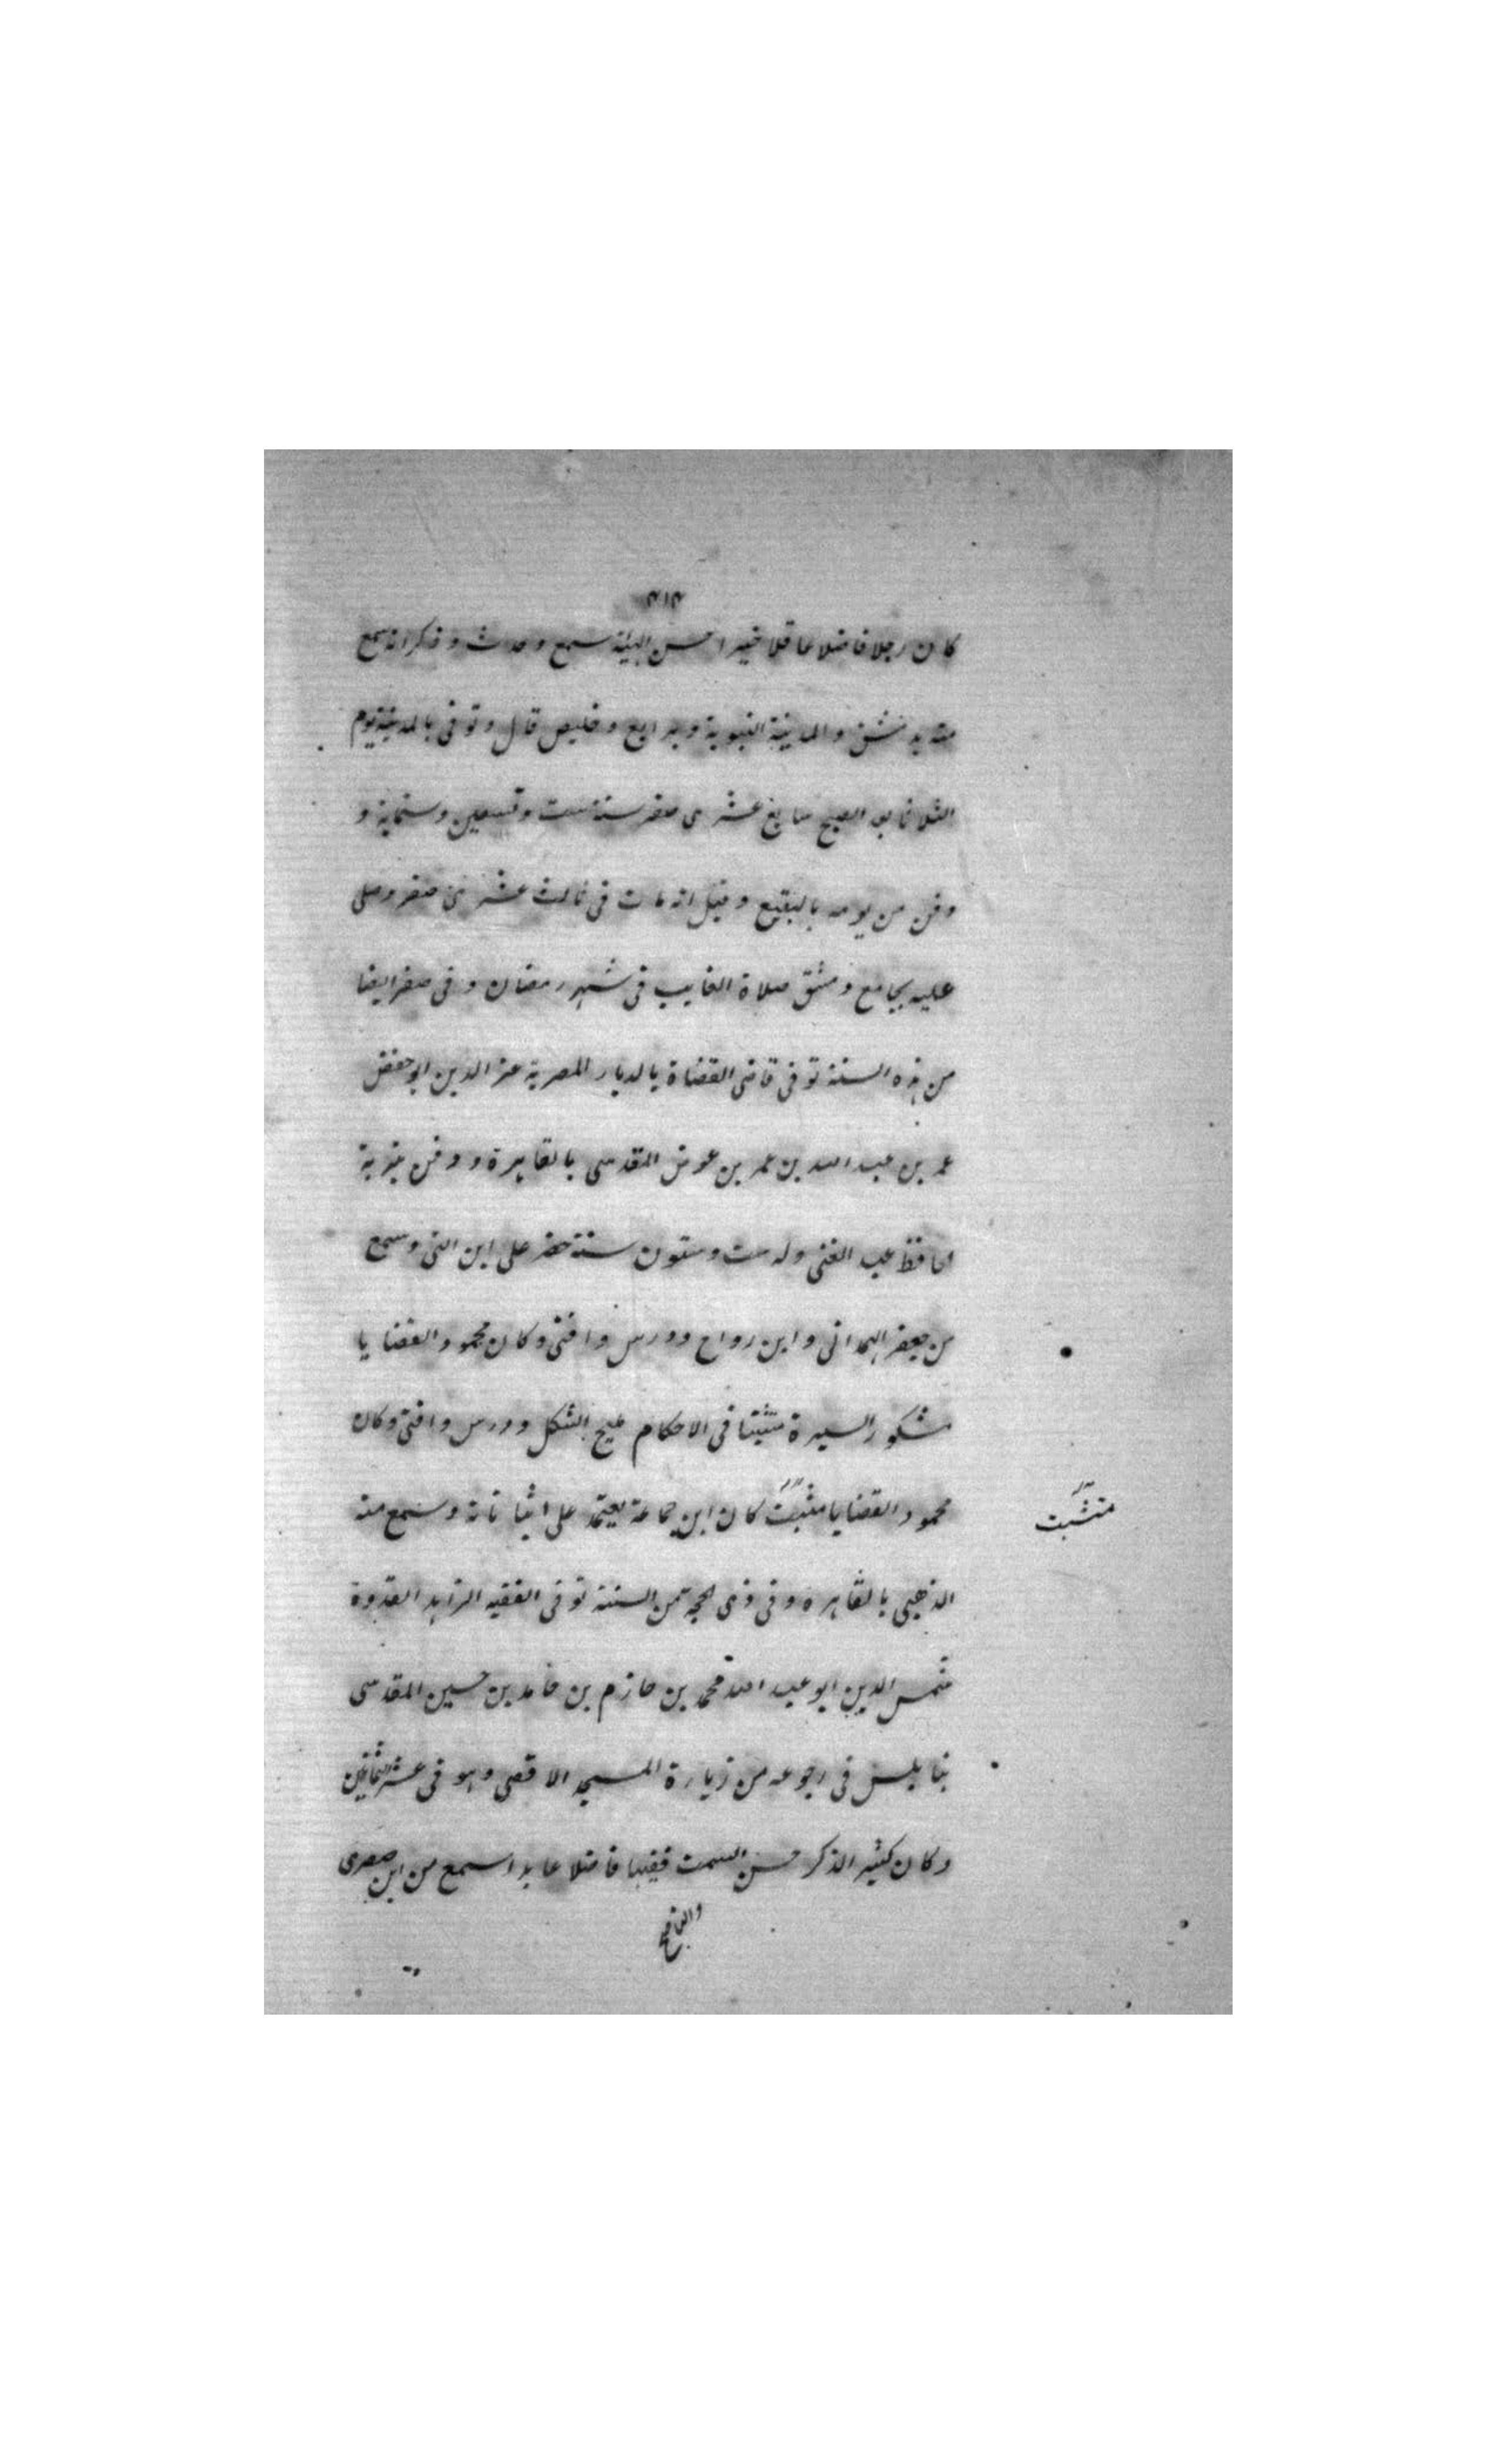 ٣١٣
كان رجلا فاضلا عاقلا خيرا حسن الهيئة سمع وحدث وذكر انه سمع
منه بدمشق والمدينة النبوية وبرابع وخليص قال وتوفى بالمدينة يوم
الثلاثا بعد الصبح سابع عشرى صفر سنة ست وتسعين وستماية و
دفن من يومه بالبقيع وقيل انه مات فى ثالث عشرين صفر وصلى
عليه بجامع دمشق صلاة الغايب فى شهر رمضان وفى صفر ايضا
من هذه السنة توفى قاضى القضاة بالديار المصرية عز الدين ابو حفص
عمر بن عبد الله بن عمر بن عوض المقدسى بالقاهرة ودفن بتربة
الحافظ عبد الغنى وله ست وستون سنة حضر على ابن اللتى وسمع
من جعفر الهمدانى وابن رواح ودرس وافتى وكان محمود القضايا
مشكور السيرة متثبتا فى الاحكام مليح الشكل ودرس وافتى وكان
محمود القضايا مثبت كان ابن جماعة يعتمد على اثباتاته وسمع منه
الذهبى بالقاهرة وفى ذى الحجة من السنة توفى الفقيه الزاهد القدوة
شمس الدين ابو عبد الله محمد بن حازم بن حامد بن حسين المقدسى
بنابلس فى رجوعه من زيارة المسجد الاقصى وهو فى عشر الثمانين
وكان كثير الذكر حسن السمت فقيها فاضلا عابدا سمع من ابن صصرى
متثبت